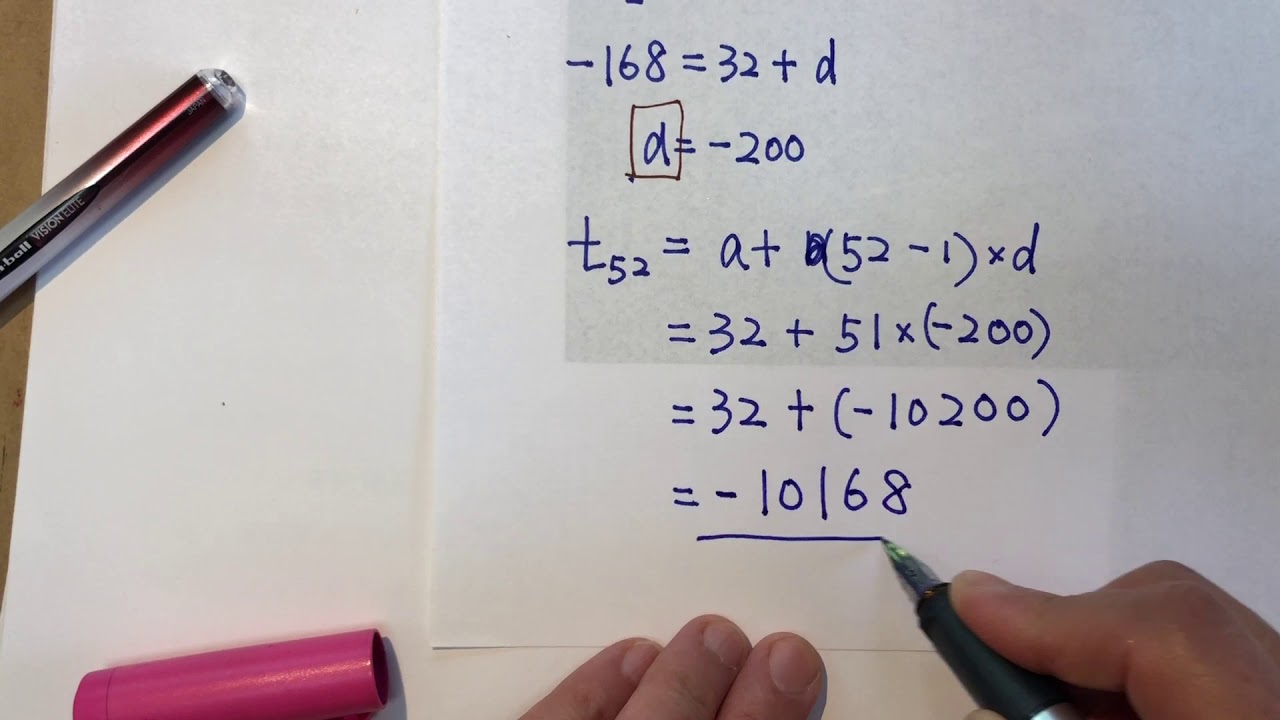 -168 = 32 + d
d = -200
t₅₂ = a + (52 - 1) × d
= 32 + 51 × (-200)
= 32 + (-10200)
= -10168
JAPAN
VISION ELITE
ball